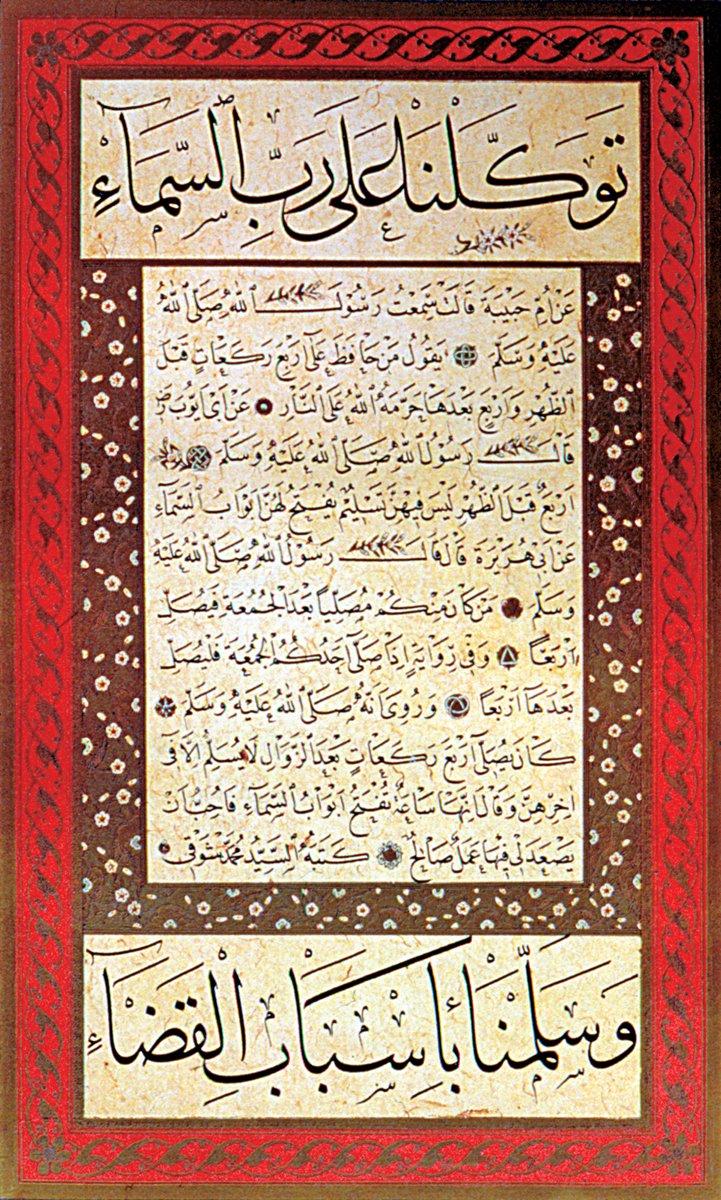 تَوَكَّلْنَا عَلَى رَبِّ السَّمَاءِ
عَنْ اُمِّ حَبِيبَةَ قَالَتْ سَمِعْتُ رَسُولَ اللهِ صَلَّى اللهُ
عَلَيْهِ وَسَلَّمَ يَقُولُ مَنْ حَافَظَ عَلَى اَرْبَعِ رَكَعَاتٍ قَبْلَ
الظُّهْرِ وَاَرْبَعٍ بَعْدَهَا حَرَّمَهُ اللهُ عَلَى النَّارِ عَنْ اَبِى اَيُّوبَ رض
قَالَ رَسُولُ اللهِ صَلَّى اللهُ عَلَيْهِ وَسَلَّمَ
اَرْبَعٌ قَبْلَ الظُّهْرِ لَيْسَ فِيهِنَّ تَسْلِيمٌ تُفْتَحُ لَهُنَّ اَبْوَابُ السَّمَاءِ
عَنْ اَبِى هُرَيْرَةَ قَالَ قَالَ رَسُولُ اللهِ صَلَّى اللهُ عَلَيْهِ
وَسَلَّمَ مَنْ كَانَ مِنْكُمْ مُصَلِّياً بَعْدَ الْجُمُعَةِ فَيُصَلِّ
اَرْبَعاً وَفِى رِوَايَةٍ اِذَا صَلَّى اَحَدُكُمُ الْجُمُعَةَ فَلْيُصَلِّ
بَعْدَهَا اَرْبَعاً وَرُوِىَ اَنَّهُ صَلَّى اللهُ عَلَيْهِ وَسَلَّمَ
كَانَ يُصَلِّى اَرْبَعَ رَكَعَاتٍ بَعْدَ الزَّوَالِ لَا يُسَلِّمُ اِلَّا فِى
اٰخِرِهِنَّ وَقَالَ اِنَّهَا سَاعَةٌ تُفْتَحُ اَبْوَابُ السَّمَاءِ فَاُحِبُّ اَنْ
يَصْعَدَ لِى فِيهَا عَمَلٌ صَالِحٌ كَتَبَهُ السَّيِّدُ مُحَمَّد شَوْقِى
وَسَلَّمْنَا بِاَسْبَابِ الْقَضَاءِ